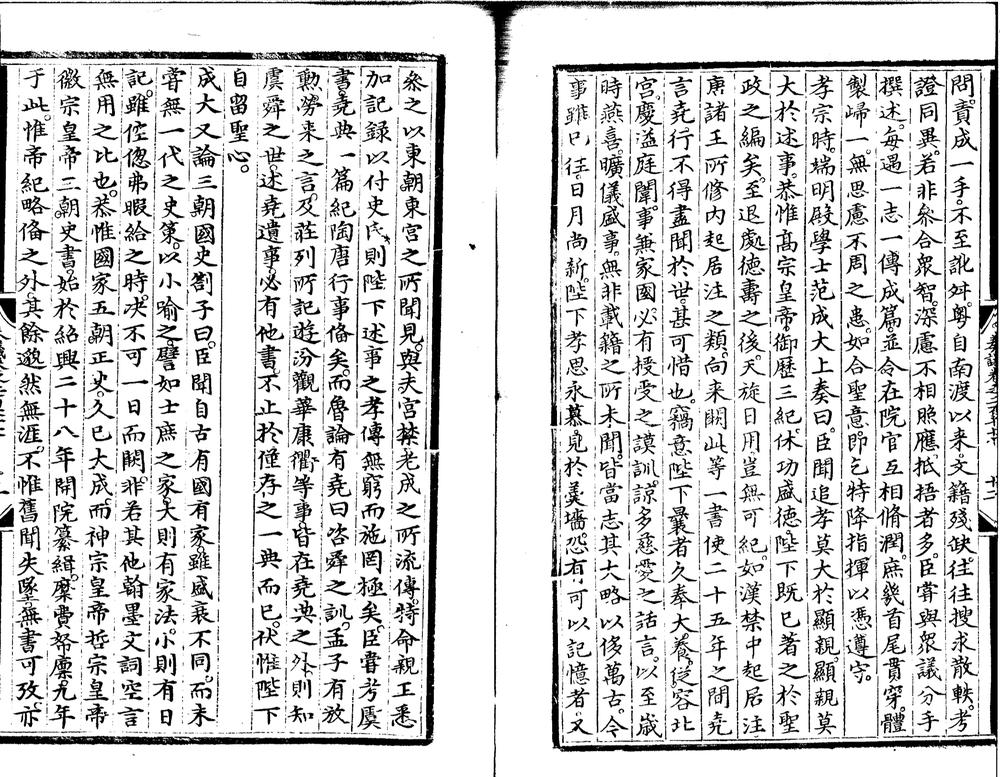 問。責成一手。不至訛舛。粵自南渡以来。文籍殘缺。往往搜求散軼。考
證同異。若非叅合衆智。深慮不相照應。抵捂者多。臣嘗與衆議分手
撰述。每過一志一傳成篇。並令在院官互相脩潤。庶幾首尾貫穿。體
製歸一。無思慮不周之患。如合聖意。即乞特降指揮以憑遵守。
孝宗時。端明殿學士范成大上奏曰。臣聞追孝莫大於顯親。顯親莫
大於述事。恭惟髙宗皇帝。御歷三紀。休功盛德。陛下既已著之於聖
政之編矣。至退處德壽之後。天旋日用。豈無可紀。如漢禁中起居注
唐諸王所修内起居注之類。向来闕此等一書。使二十五年之間。堯
言堯行。不得盡聞於世。甚可惜也。竊意陛下曩者久奉大養。從容北
宫。慶溢庭闈。事兼家國。必有授受之謨訓。諒多慈愛之話言。以至歲
時燕喜。曠儀盛事。無非載籍之所未聞。皆當志其大略。以俟萬古。今
事雖已往。日月尚新。陛下孝思永慕。見於羹墻。恐有可以記憶者。又
叅之以東朝東宫之所聞見。與夫宫禁老成之所流傳。特命親王悉
加記録。以付史氏。則陛下述事之孝。傳無窮而施罔極矣。臣嘗考虞
書堯典一篇。紀陶唐行事俻矣。而魯論有堯曰咨舜之訓。孟子有放
勳勞来之言。及莊列所記。遊汾觀華康衢等事。皆在堯典之外。則知
虞舜之世。述堯遺事。必有他書。不止於僅存之一典而已。伏惟陛下
自留聖心。
成大又論三朝國史劄子曰。臣聞自古有國有家。雖盛衰不同。而未
嘗無一代之史策。以小喻之。譬如士庶之家。大則有家法。小則有日
記。雖倥偬弗暇給之時。决不可一日而闕。非若其他翰墨文詞空言
無用之比也。恭惟國家五朝正史。久已大成。而神宗皇帝哲宗皇帝
徽宗皇帝三朝史書。始於紹興二十八年開院纂緝。糜費帑廪。九年
于此。惟帝紀略俻之外。其餘邈然無涯。不惟舊聞失墜。無書可攷。亦